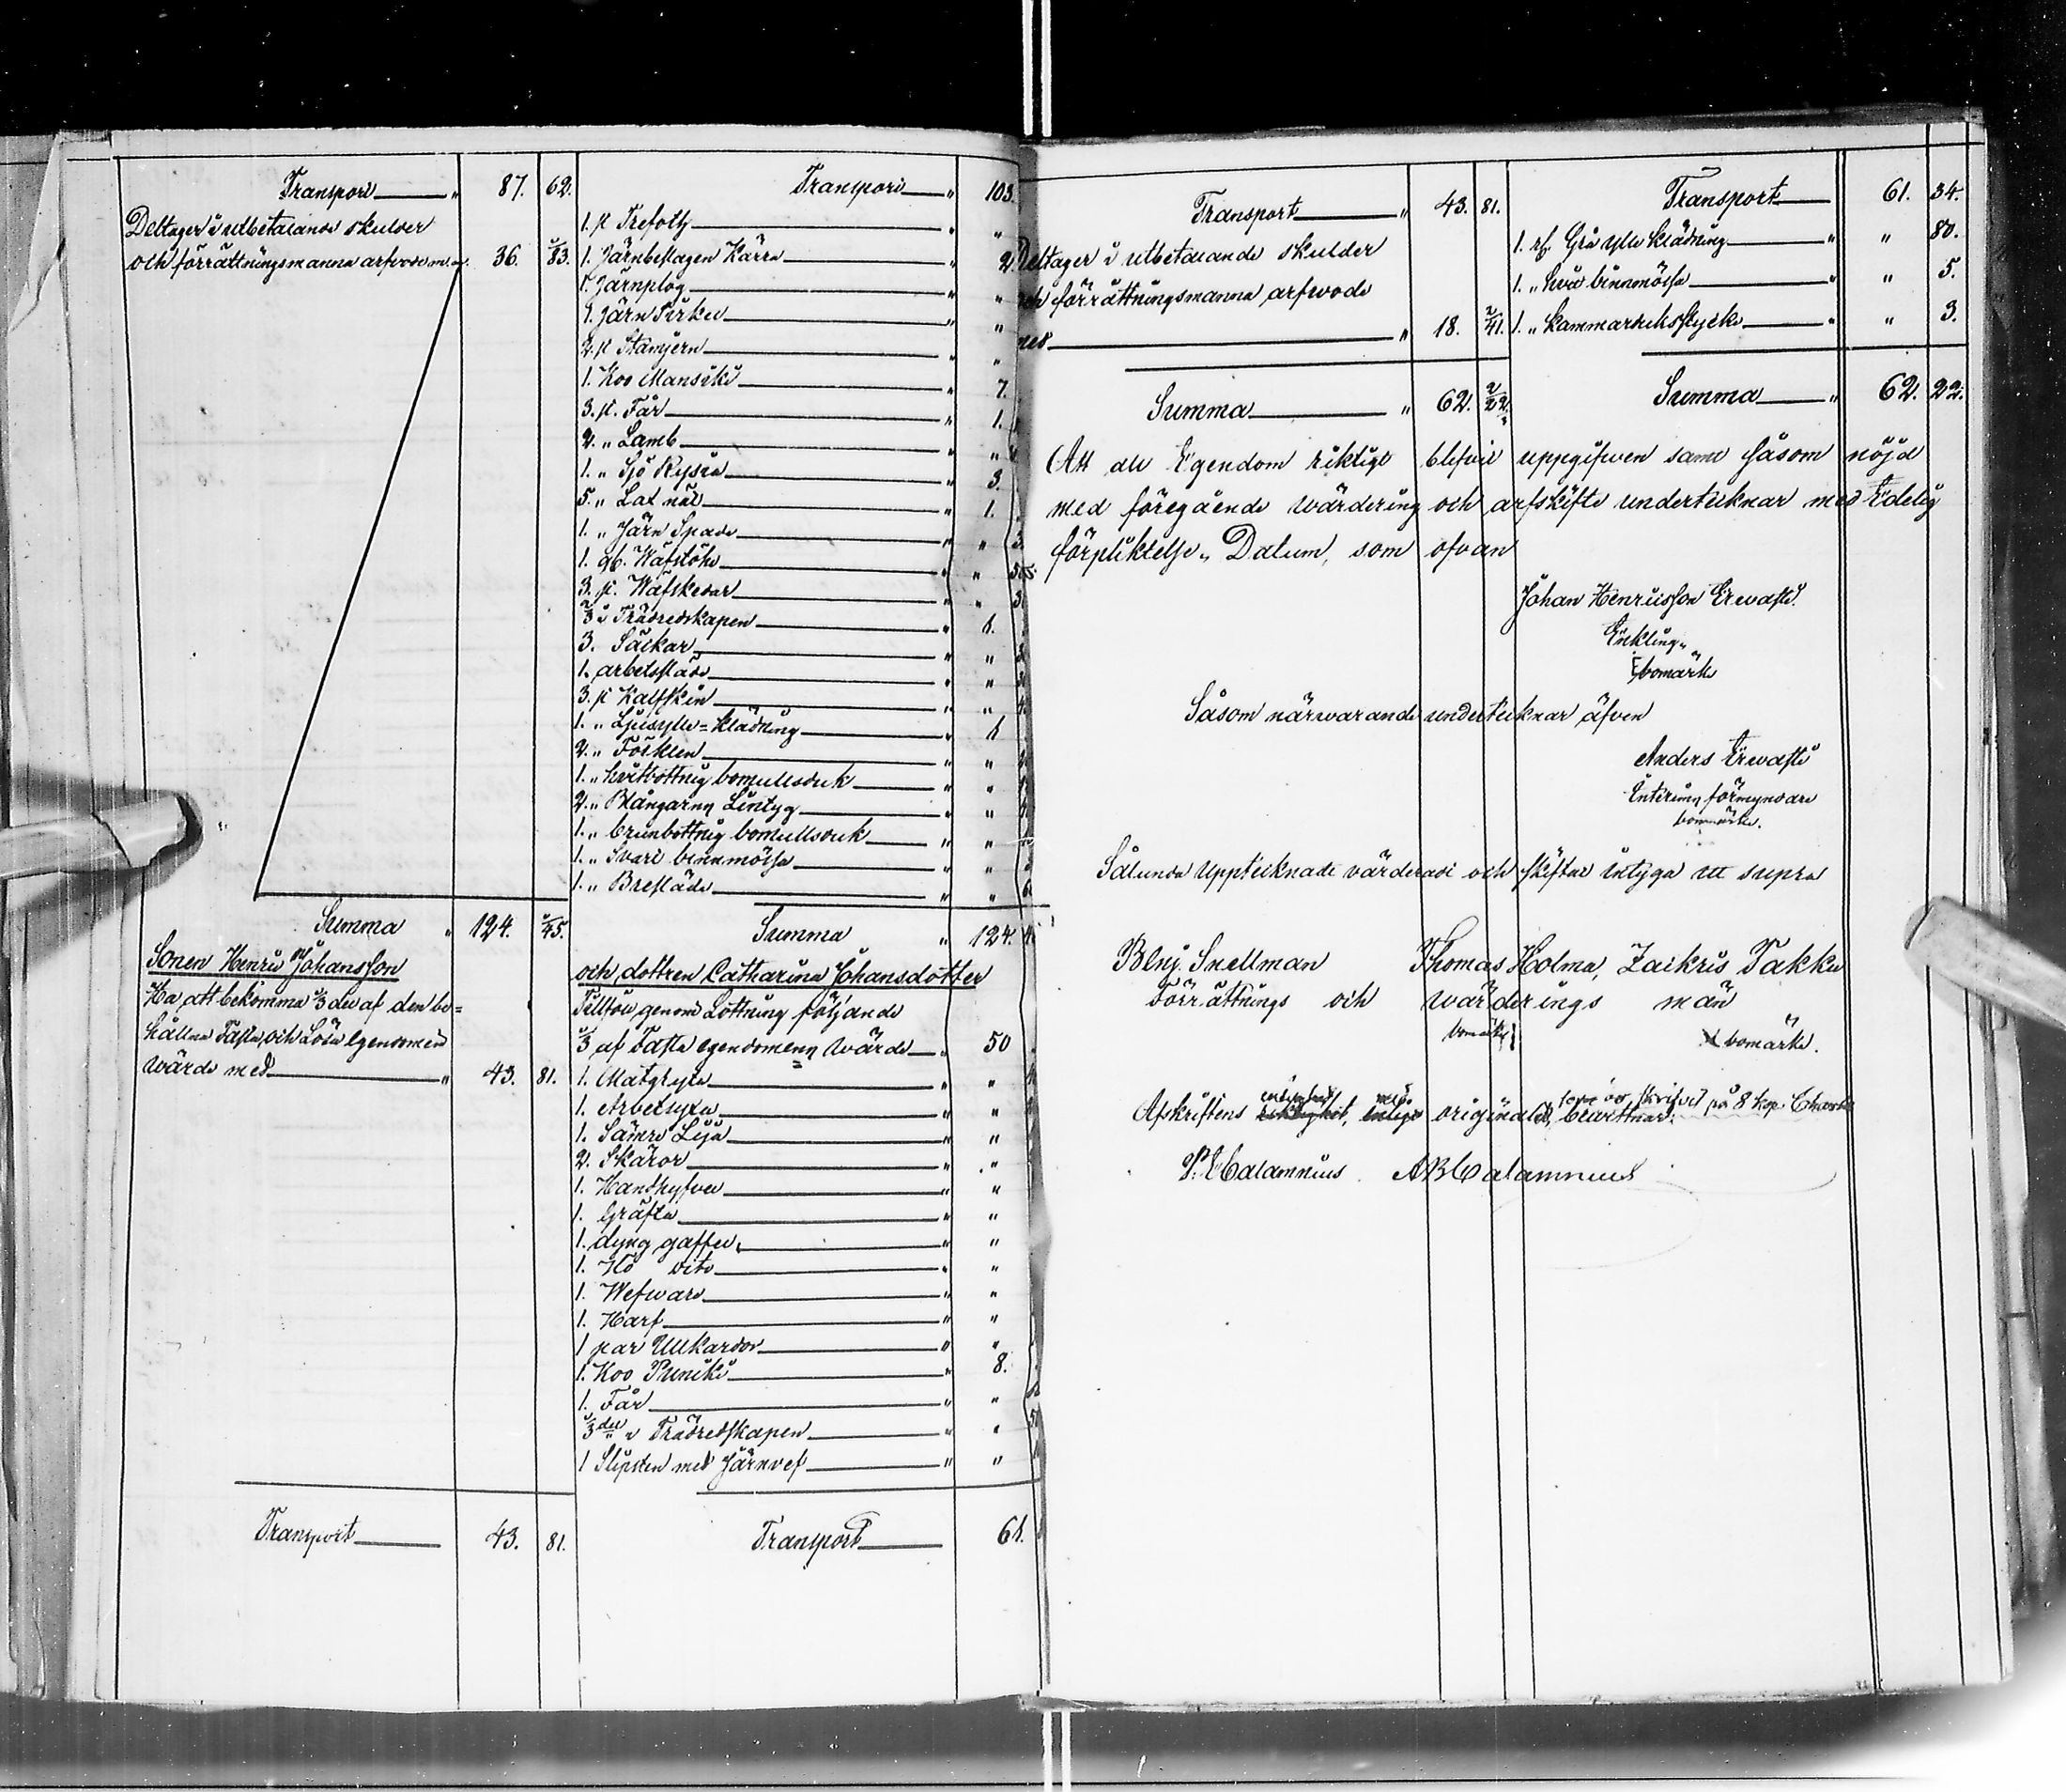 Transport " 87. 62.
Deltager i utbetalande skulder
och förrättningsmanna arfvode m.m. 36. 83.
Summa " 124. 45.
Sonen Henric Johansson
Ha att bekomma 1/3 del af den be=
hållna Fasta och Lösa Egendomens
Wärde med " 43. 81.
Transport 43. 81.
Transport " 103.
1. st Trefoth "
1. Järnbeslagen Kärra " 2.
1. Järnplog " "
1. Järn Virkel " "
2. st Stämjern "
1. Koo Mansiki " 7.
3. st. Får " 1.
2. " Lamb " "
1. " Sjö Ryssia " 3.
5. " Lax nät " 1.
1. " Järn Spade " "
1. gb. Wäfstohl " "
3. st. Wäfskedar " "
2/3 i Trädredskapen " 1.
3. Säckar " "
1. arbetssläde " "
3. st Kalfskin " "
1. " Ljusylle=klädning " 1
2. " Förkläen " "
1. " hvitbottnig bomullsduk " "
2. " Blångarns Lintyg " "
1. " brunbottnig bomullsduk " "
1. " Svart binnmössa " "
1. " Bresläde " "
Summa " 124.
och dottren Catharina Johansdotter
Tillföll genom Lottning följande
1/3 af Fasta egendomens Wärde " 50
1. Matgryta " "
1. Arbetsyxa " "
1. Sämre Lija " "
2. Skäror " "
1. Handhyfvel " "
1. Gräfta " "
1. dyng gaffel " "
1. Hö dito " "
1. Wefware " "
1. Harf " "
1 par Ullkardor " "
1. Koo Puniki " 8.
1. Får " "
1/3 del i Trädredskapen " "
1 Slipsten med Järnvef " "
Transport 61.
Transport " 43. 81.
Deltager i utbetalande skulder
och förrättningsmanna arfwode
med " 18. 41.
Summa " 62. 22.
Transport 61. 34.
1. st. Grå ylle klädning " " 80.
1. " hvit binnmössa " " 5.
1. " Kammarduksstycke " " 3.
Summa " 62. 22.
Att all Egendom riktigt blifvit uppgifwen samt såsom nöjd
med föregående wärdering och arfskifte undertecknar med Edelig
förpliktelse. Datum, som ofvan
Johan Henricsson Erwasti.
Enkling.
bomärke
Såsom närwarande undertecknar äfven
Anders Erwasti
Interims förmyndare
bomärke.
Sålunda Uppteiknadt värderadt och skiftat intyga ut supra
Benj. Snellman Thomas Holma, Zackris Takku
Förrättnings och wärderings män
bomärke bomärke.
Afskriftens riktighet, med originalet, som är skrifvet på 8 kop. Charta
bewittnar:
P. Calamnius A B Calamnius